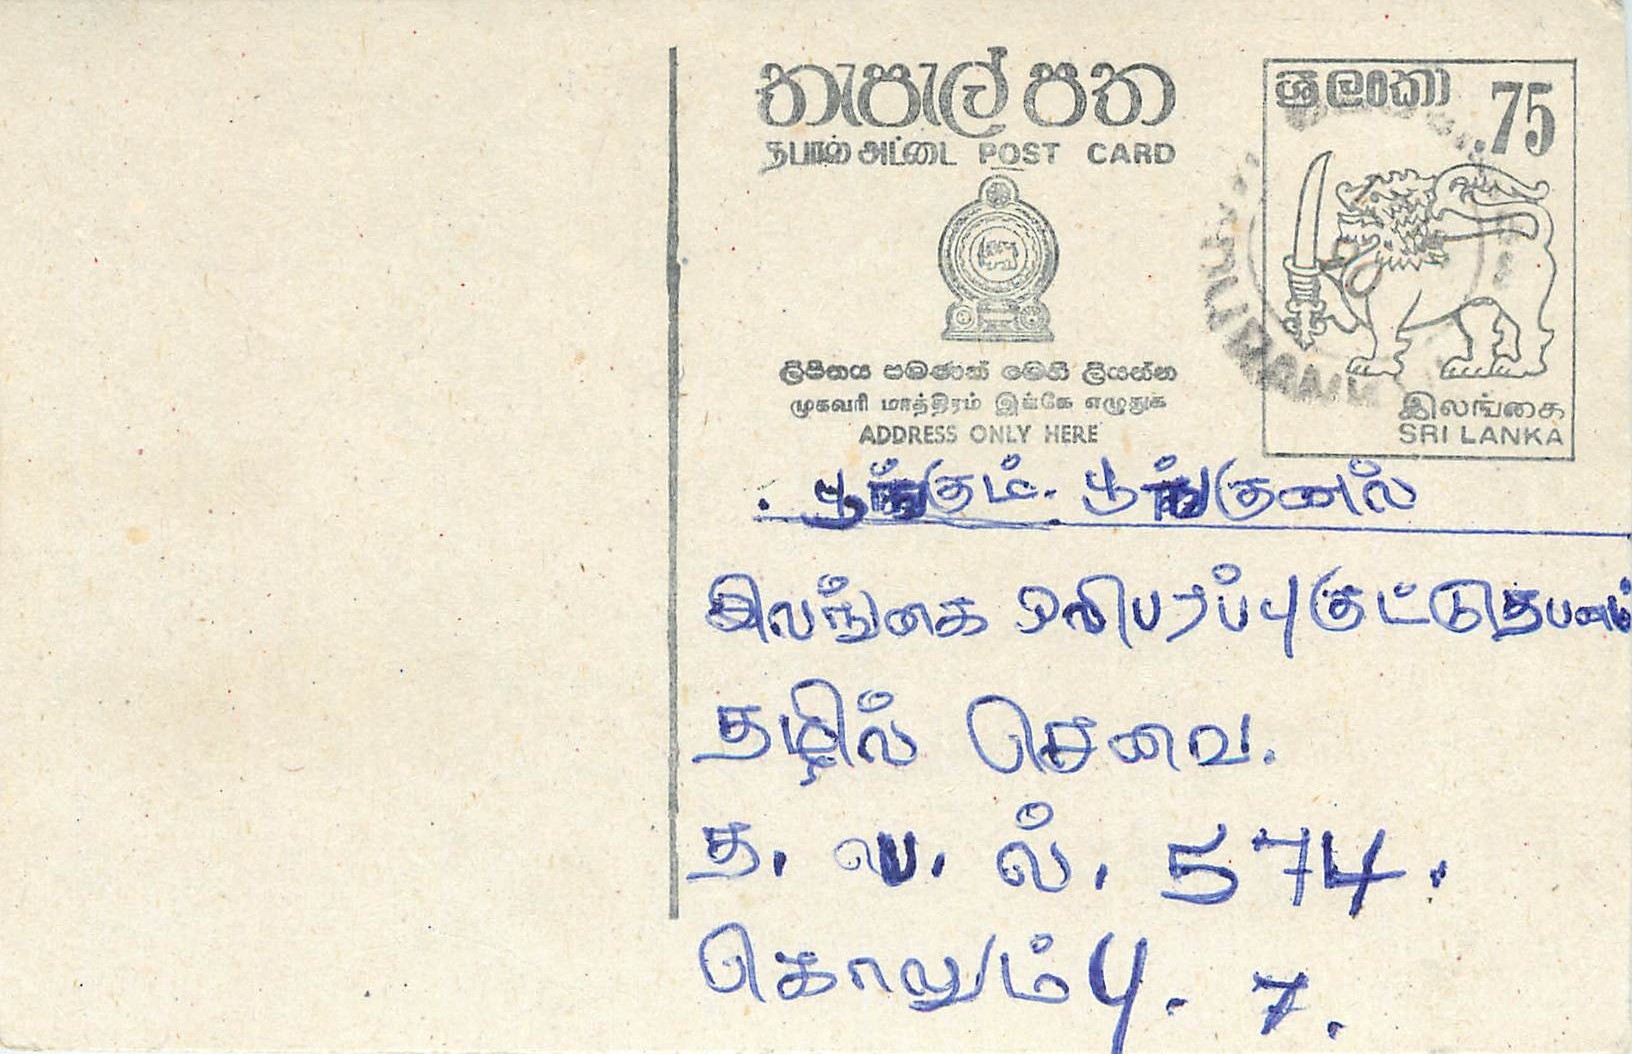 තැපැල් පත
தபால் அட்டை POST CARD
ශ්‍රී ලංකා .75
ලිපිනය පමණක් මෙහි ලියන්න
முகவரி மாத்திரம் இங்கே எழுதுக
ADDRESS ONLY HERE
இலங்கை
SRI LANKA
பூங்கும். பூங்குனல்
இலங்கை ஒலிபரப்பு குட்டுதபனம்
தழில் செவை.
த. வ. ல். 574.
கொலும்பு. 7.